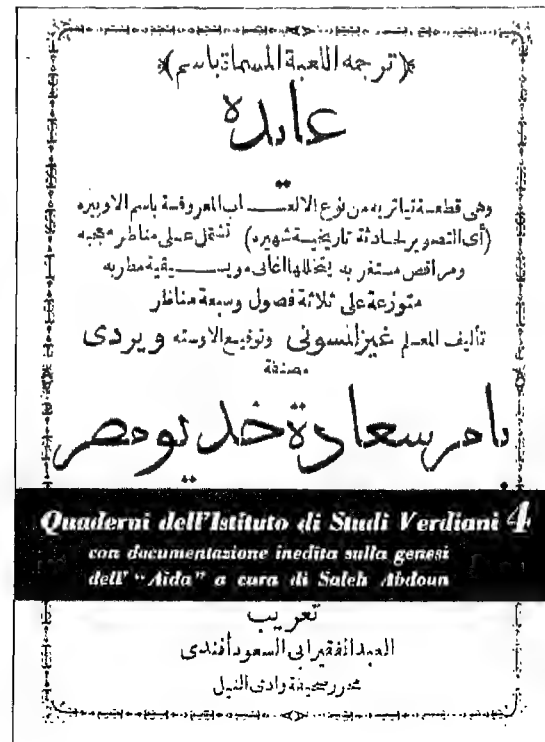 ﴿ترجمة اللعبة المسماة باسم﴾
عايدة
وهى قطعة تياتريه من نوع الالعــاب المعروفة باسم الاوبيره
(أى التصوير لحادثة تاريخيــة شهيره) تشتمل على مناظر عجيبه
ومراقص مستغربه يتخللها اغانى موسيــقية مطربه
متوزعة على ثلاثة فصول وسبعة مناظر
تأليف المعلم غيزلنسونى وتوقيع الاوسته ويردى
مصنفة
بامر سعادة خديو مصر
Quaderni dell'Istituto di Studi Verdiani 4
con documentazione inedita sulla genesi
dell' "Aida" a cura di Saleh Abdoun
تعريب
العبد الفقير ابى السعود أفندى
محرر صحيفة وادى النيل